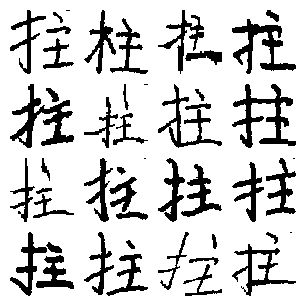 拄拄拄拄
拄拄拄拄
拄拄拄拄
拄拄拄拄